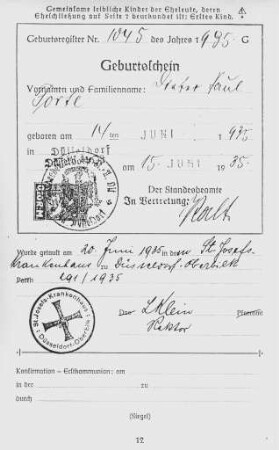 Gemeinsame leibliche Kinder der Eheleute, deren
Eheschließung auf Seite 7 beurkundet ist: Erstes Kind.
Geburtsregister Nr. 1045 des Jahres 1935 G
Geburtsschein
Vornamen und Familienname: Dieter Paul
geboren am 14ten JUNI 1935
in Düsseldorf
am 15. JUNI 1935.
Der Standesbeamte
In Vertretung:
Wurde getauft am 20. Juni 1935 in dem St. Josefs-
krankenhaus zu Düsseldorf-Oberbilk
291/1935
St. Josefs-Krankenhaus
Düsseldorf-Oberbilk
Der L Klein
Rektor
Konfirmation – Erstkommunion: am
in der zu
durch
(Siegel)
12